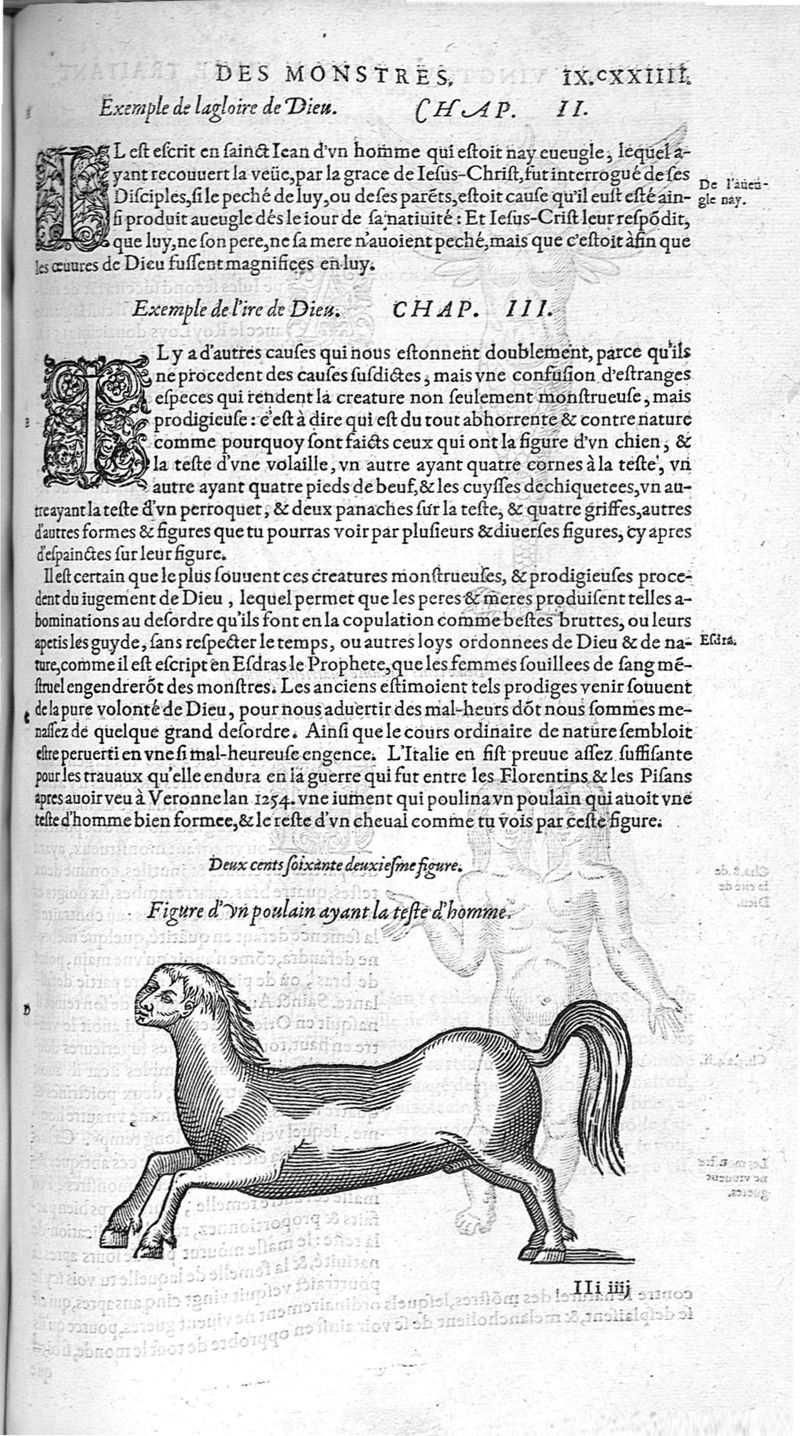 DES MONSTRES. IX.CXXIIII.
Exemple de la gloire de Dieu. CHAP. II.
IL est escrit en sainct Iean d'vn homme qui estoit nay eueugle, lequel a-
yant recouuert la veüe, par la grace de Iesus-Christ, fut interrogué de ses
Disciples, si le peché de luy, ou de ses parẽts, estoit cause qu'il eust esté ain-
si produit aueugle dés le iour de sa natiuité: Et Iesus-Crist leur respõdit,
que luy, ne son pere, ne sa mere n'auoient peché, mais que c'estoit àfin que
les œuures de Dieu fussent magnifices en luy.
De l'aueu-
gle nay.
Exemple de l'ire de Dieu. CHAP. III.
IL y a d'autres causes qui nous estonnent doublement, parce qu'ils
ne procedent des causes susdictes; mais vne confusion d'estranges
especes qui rendent la creature non seulement monstrueuse, mais
prodigieuse: c'est à dire qui est du tout abhorrente & contre nature
comme pourquoy sont faicts ceux qui ont la figure d'vn chien, &
la teste d'vne volaille, vn autre ayant quatre cornes à la teste, vn
autre ayant quatre pieds de beuf, & les cuysses dechiquetees, vn au-
tre ayant la teste d'vn perroquet, & deux panaches sur la teste, & quatre griffes, autres
d'autres formes & figures que tu pourras voir par plusieurs & diuerses figures, cy apres
d'espainctes sur leur figure.
Il est certain que le plus souuent ces creatures monstrueuses, & prodigieuses proce-
dent du iugement de Dieu, lequel permet que les peres & meres produisent telles a-
bominations au desordre qu'ils font en la copulation comme bestes bruttes, ou leurs
apetis les guyde, sans respecter le temps, ou autres loys ordonnees de Dieu & de na-
ture, comme il est escript en Esdras le Prophete, que les femmes souillees de sang mẽ-
struel engendrerõt des monstres. Les anciens estimoient tels prodiges venir souuent
de la pure volonté de Dieu, pour nous aduertir des mal-heurs dõt nous sommes me-
nassez de quelque grand desordre. Ainsi que le cours ordinaire de nature sembloit
estre peruerti en vne si mal-heureuse engence. L'Italie en fist preuue assez suffisante
pour les trauaux qu'elle endura en la guerre qui fut entre les Florentins & les Pisans
apres auoir veu à Veronne lan 1254. vne iument qui poulina vn poulain qui auoit vne
teste d'homme bien formee, & le reste d'vn cheual comme tu vois par ceste figure.
Esdra.
Deux cents soixante deuxiesme figure.
Figure d'vn poulain ayant la teste d'homme.
D
IIi iiij